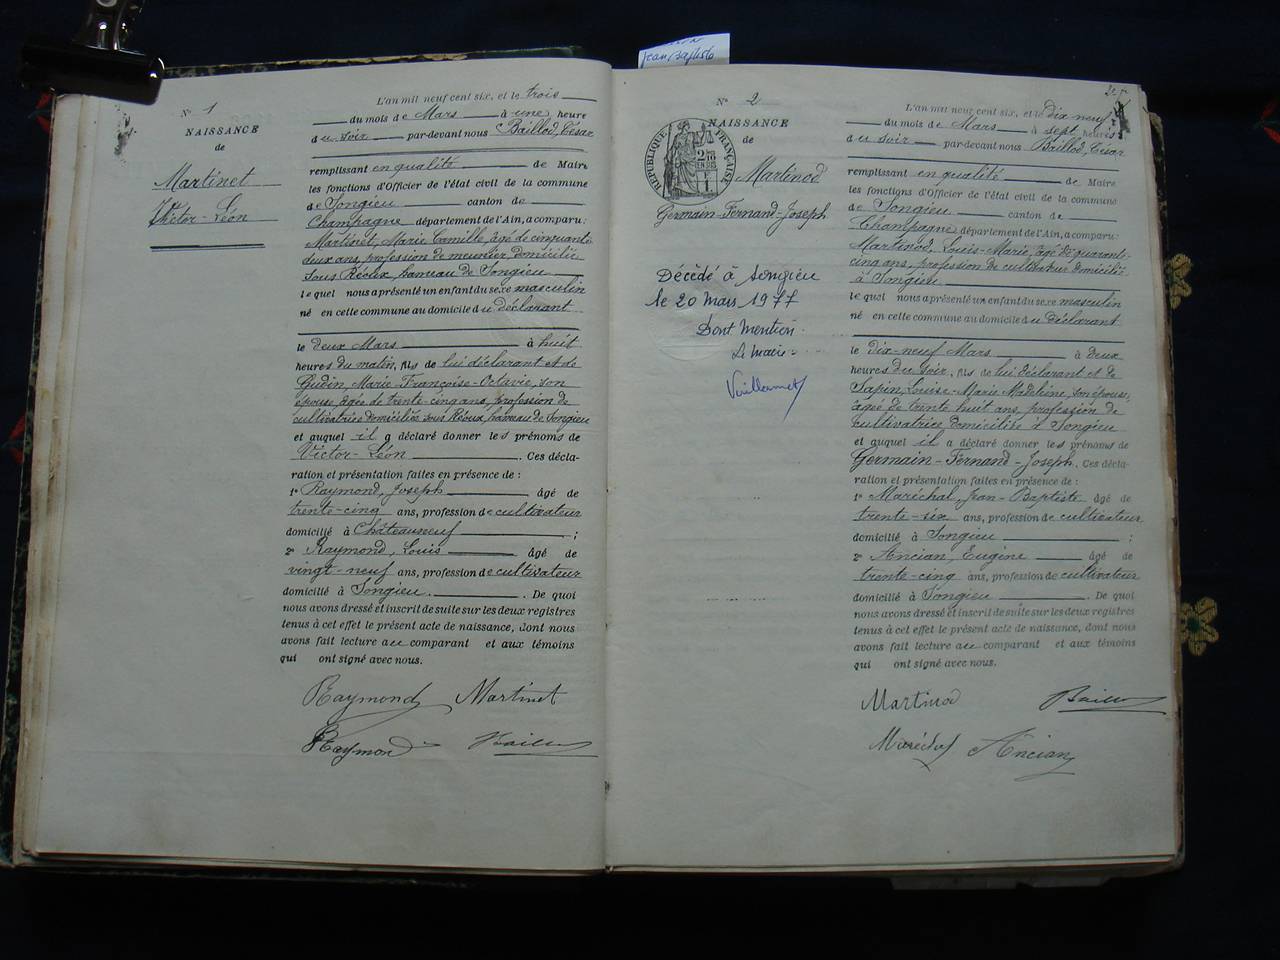 Jean Baptiste
N° 1
NAISSANCE
de
Martinet
Victor-Léon
L'an mil neuf cent six, et le trois
du mois de Mars à une heure
du soir par-devant nous Baillod, César
remplissant en qualité de Maire
les fonctions d'Officier de l'état civil de la commune
de Songieu canton de
Champagne département de l'Ain, a comparu:
Martinet, Marie Camille, âgé de cinquante
deux ans, profession de meunier, domicilié
sous Réoux, hameau de Songieu
lequel nous a présenté un enfant du sexe masculin
né en cette commune au domicile du déclarant
le deux Mars à huit
heures du matin, fils de lui déclarant et de
Gudin, Marie-Françoise-Octavie, son
épouse, âgée de trente-cinq ans, profession de
cultivatrice domiciliée sous Réoux, hameau de Songieu
et auquel il a déclaré donner les prénoms de
Victor-Léon. Ces décla-
ration et présentation faites en présence de :
1° Raymond, Joseph âgé de
trente-cinq ans, profession de cultivateur
domicilié à Châteauneuf ;
2° Raymond, Louis âgé de
vingt-neuf ans, profession de cultivateur
domicilié à Songieu. De quoi
nous avons dressé et inscrit de suite sur les deux registres
tenus à cet effet le présent acte de naissance, dont nous
avons fait lecture au comparant et aux témoins
qui ont signé avec nous.
Raymond Martinet
Raymond Baillod
N° 2
NAISSANCE
de
RÉPUBLIQUE FRANÇAISE
Martinod
Germain-Fernand-Joseph
Décédé à Songieu
le 20 mars 1977
Dont Mention.
Le maire
L'an mil neuf cent six, et le dix-neuf
du mois de Mars à sept heures
du soir par-devant nous Baillod, César
remplissant en qualité de Maire
les fonctions d'Officier de l'état civil de la commune
de Songieu canton de
Champagne département de l'Ain, a comparu:
Martinod, Louis-Marie, âgé de quarante-
cinq ans, profession de cultivateur domicilié
à Songieu
lequel nous a présenté un enfant du sexe masculin
né en cette commune au domicile du déclarant
le dix-neuf Mars à deux
heures du soir, fils de lui déclarant et de
Sapin, Louise-Marie Madeleine, son épouse,
âgée de trente huit ans, profession de
cultivatrice domiciliée à Songieu
et auquel il a déclaré donner les prénoms de
Germain-Fernand-Joseph. Ces décla-
ration et présentation faites en présence de :
1° Maréchal, Jean-Baptiste âgé de
trente-six ans, profession de cultivateur
domicilié à Songieu ;
2° Ancian, Eugène âgé de
trente-cinq ans, profession de cultivateur
domicilié à Songieu. De quoi
nous avons dressé et inscrit de suite sur les deux registres
tenus à cet effet le présent acte de naissance, dont nous
avons fait lecture au comparant et aux témoins
qui ont signé avec nous.
Martinod Baillod
Maréchal Ancian